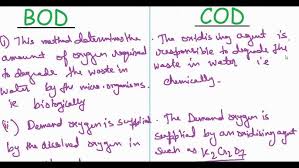 BOD
(i) This method determines the
amount of oxygen required
to degrade the waste in
water by the micro-organisms.
ie biologically
(ii) Demand oxygen is supplied
by the dissolved oxygen in
COD
The oxidising agent is
responsible to degrade the
waste in water i.e
chemically.
The Demand oxygen is
supplied by an oxidising agent
such as K2Cr2O7